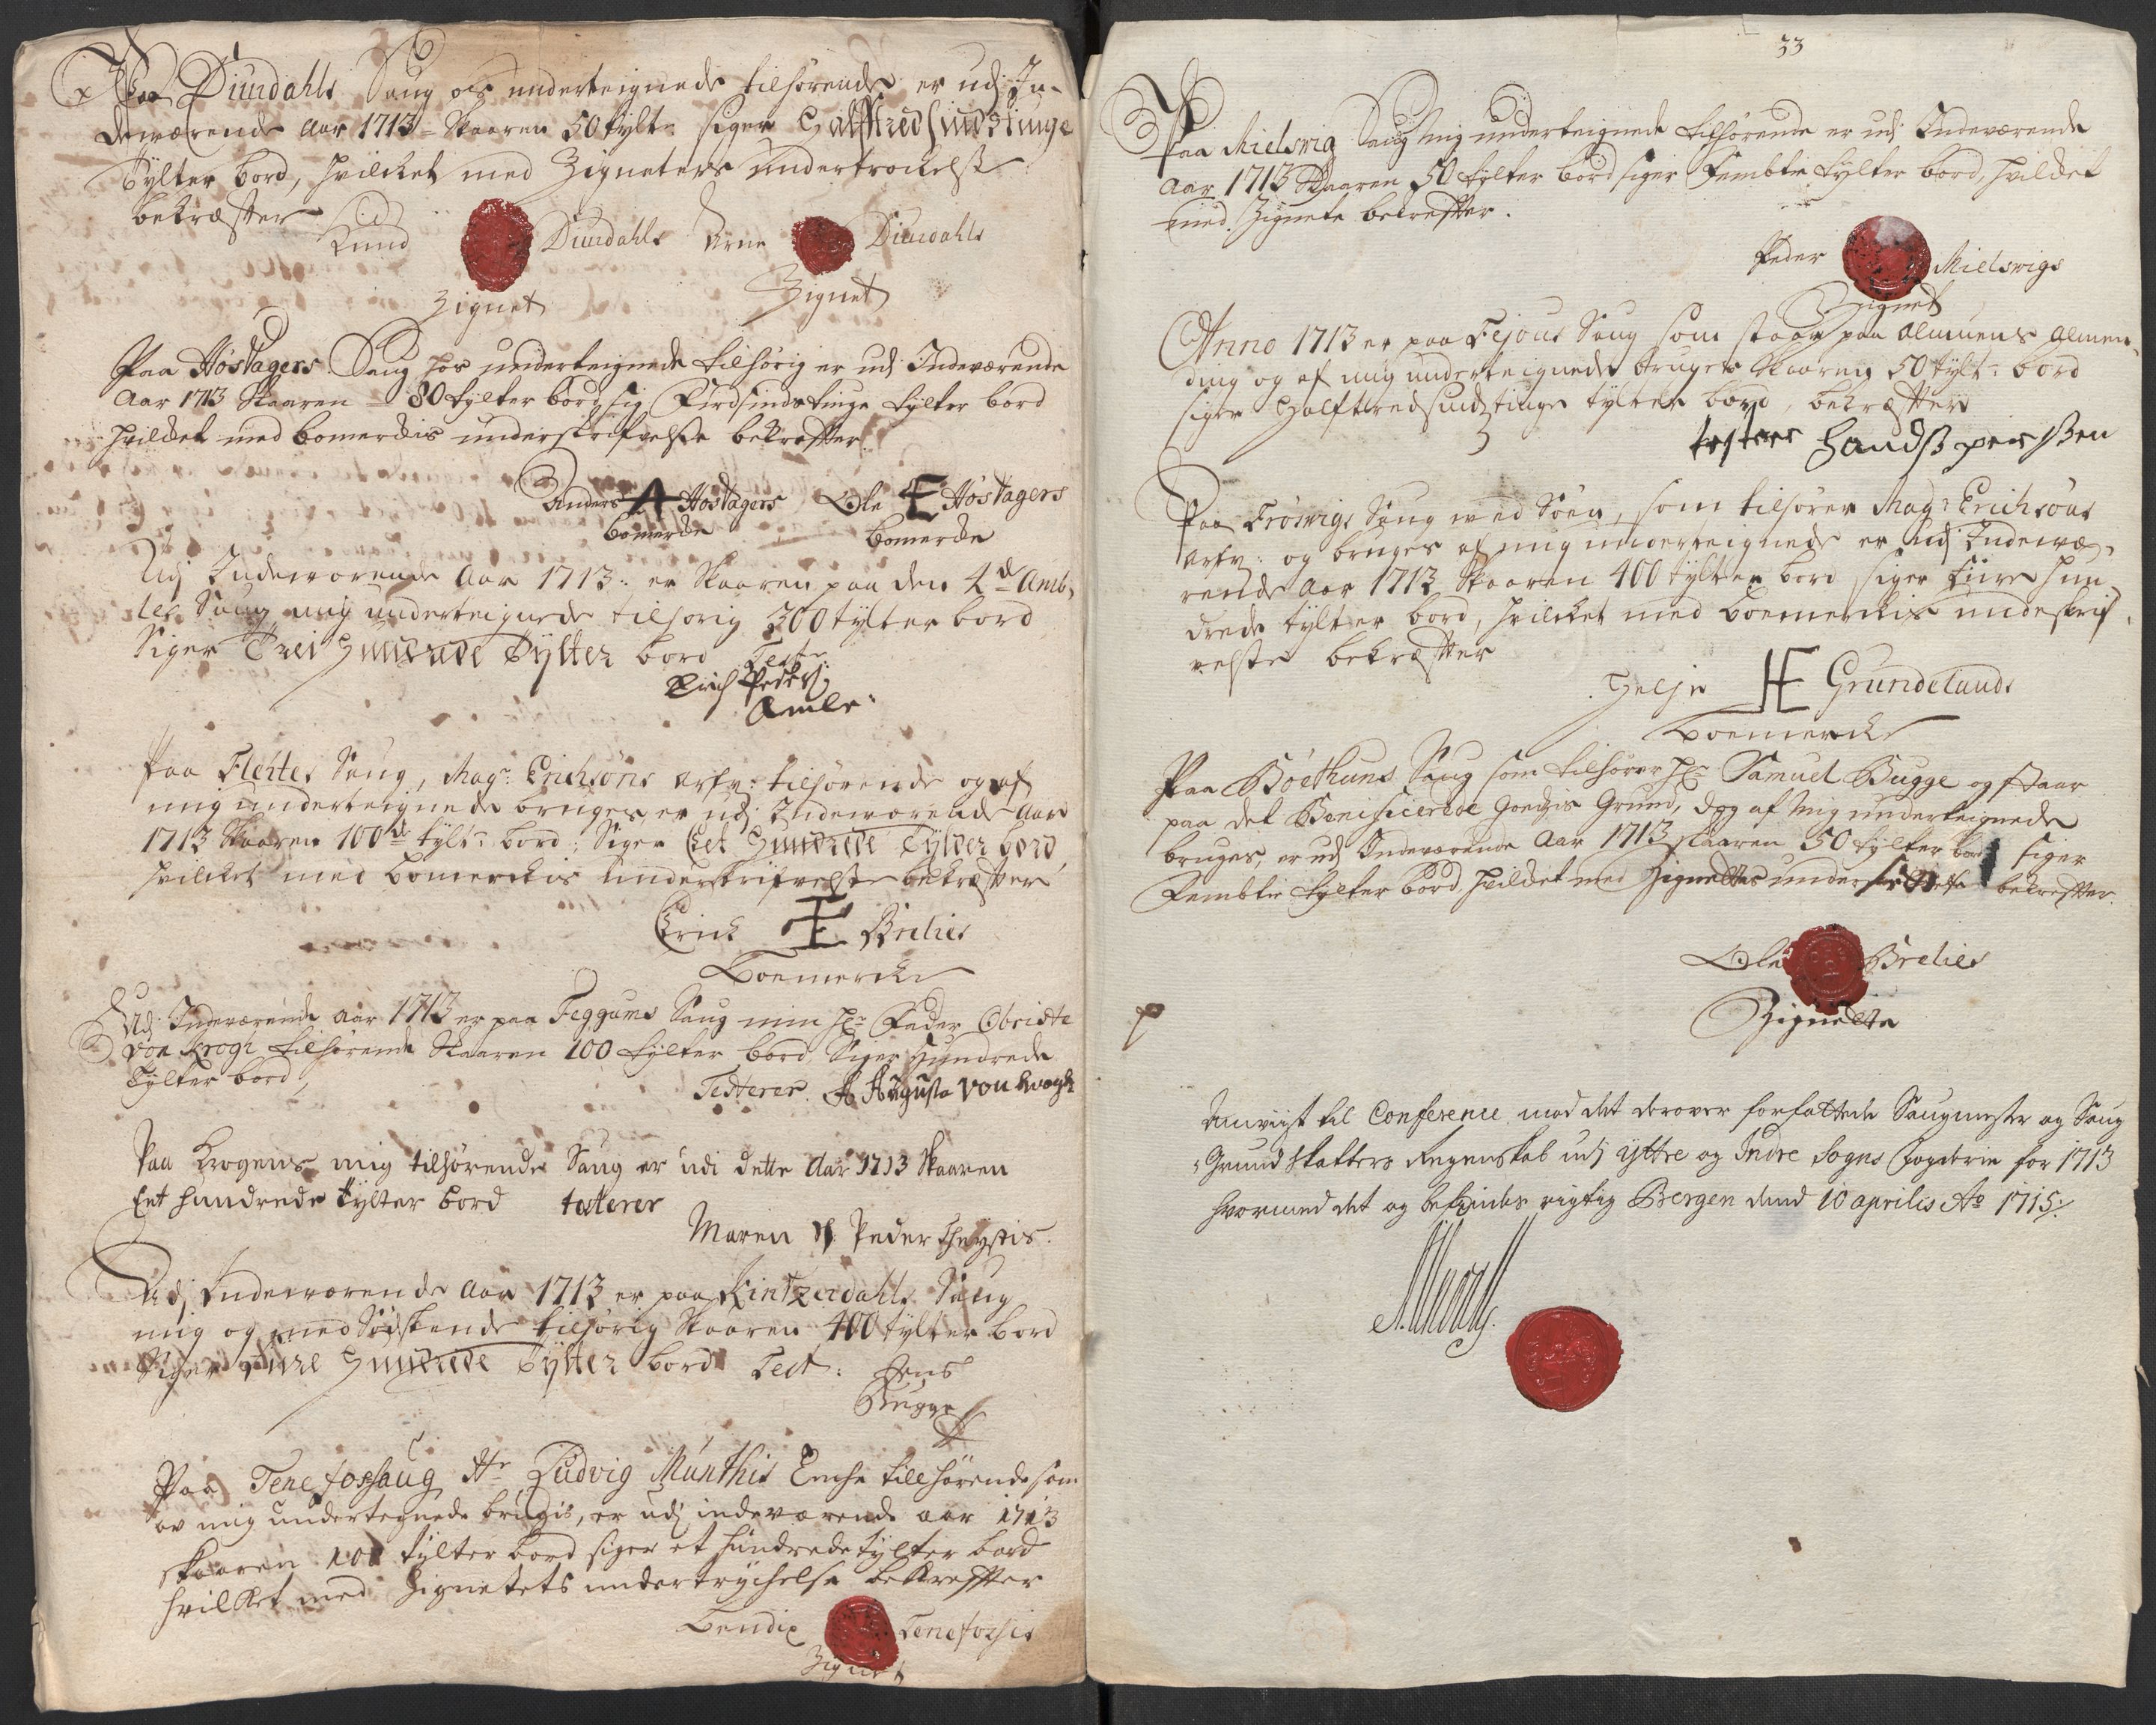 Paa Diurdahls Saug os underteignede tilhørende er udj In-
deværende Aar 1713 Skaaren 50 tylt: siger Halfftredsindstiuge
Tylter bord, hvilcket med Zigneters undertrockelse
bekræffter
Knud Diurdahls Arne Diurdahls
Zignet Zignet
Paa Høstagers Saug hos underteignede tilhørig er udj Indeværende
Aar 1713 Skaaren 80 tylter bord sig: Fiirdsindstiuge tylter bord
hvilcket med bomerckis underskrifvelse bekreffter
Anders A Høstagers Ole Høstagers
bomercke bomercke
Udj Indeværende Aar 1713: er Skaaren paa den 4de Amb-
les Saug mig underteignede tilhørig 300 tylter bord
Siger Trei Hundrede Tylter bord Test:
Erich Peders:
Amle
Paa Flehtes Saug, Mag: Erichsøns arfv: tilhørende og af
mig underteignede bruges er udj Indeværende Aar
1713 Skaaren 100de tylt: bord: Siger Eet Hundrede Tylter bord
hvilcket med bomerckis underskrifvelse bekræffter
Erick Brelies
Boemercke
Udj Indeværende Aar 1713 er paa Feggums Saug min Hr: Fader Obriste
von Krogh tilhørende Skaaren 100 tylter bord Siger Hundrede
Tylter bord,
Testerer A Augusta von Krogh
Paa Krogens mig tilhørende Saug er udi dette Aar 1713 Skaaren
Eet hundrede tylter bord testerer
Maren Peder Theystis
Udj Indeværende Aar 1713 er paa Kintzerdahls Saug
mig og med Sødskende tilhørig Skaaren 400 tylter bord
Siger Fiire Hundrede Tylter bord Test: Jens
Bugge
Paa Tenefossaug Hr Ludvig Munthis Encke tillhørende som
av mig undertegnede brugis, er udj indeværende aar 1713
skaaren 100 tylter bord siger et hundrede tylter bord
hvilket med Zignetets undertryckelse bekreffter
Bendix Tenefossis
Zignet
33
Paa Mielsvig Saug mig underteignede tilhørende er udj Indeværende
Aar 1713 Skaaren 50 tylter bord siger Fembtie tylter bord, hvilcket
med Zignete bekreffter.
Peder Mielsvigs
Zignet
Anno 1713 er paa Fejous Saug som staar paa almuens almen-
ding og af mig underteignede bruges Skaaren 50 tylt: bord
siger Halftredsindstiuge tylter bord, bekræffter
testerer Handß perßen
Paa Frøsvigs Saug ved Søen, som tilhører Mag: Erichsøns
arfv: og bruges af mig underteignede er udj Indevæ-
rende Aar 1713 Skaaren 400 tylter bord siger Fiire Hun-
drede tylter bord, hvilcket med boemerckis undeskrif-
velse bekræffter
Helje Grundelands
Boemercke
Paa Böethuns Saug som tilhører Hr: Samuel Bugge og staar
paa det Benificerede Goedzis Grund, dog af Mig underteignede
bruges, er udj Indeværende Aar 1713 skaaren 50 tylter bord siger
Fembtie tylter bord, hvilcket med Zignettes bekreffter.
Ole Brelies
Zignette
Anviist til Conference med det derover forfattede Saugmester og Saug
Grund Skatters Regenskab udj yttre og Indre Sogns Fogderie for 1713
hvormed det og befindes rigtig Bergen dend 10 aprilis Ao 1715: